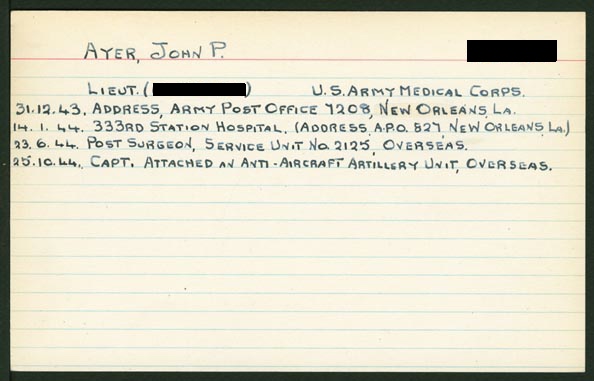 AYER, JOHN P.
LIEUT. ( ) U.S. ARMY MEDICAL CORPS.
31.12.43. ADDRESS, ARMY POST OFFICE 7208, NEW ORLEANS, LA.
14. 1. 44. 333RD STATION HOSPITAL. (ADDRESS A.P.O. 827, NEW ORLEANS, LA.)
23. 6. 44. POST SURGEON, SERVICE UNIT NO. 2125, OVERSEAS.
25.10.44. CAPT. ATTACHED AN ANTI-AIRCRAFT ARTILLERY UNIT, OVERSEAS.